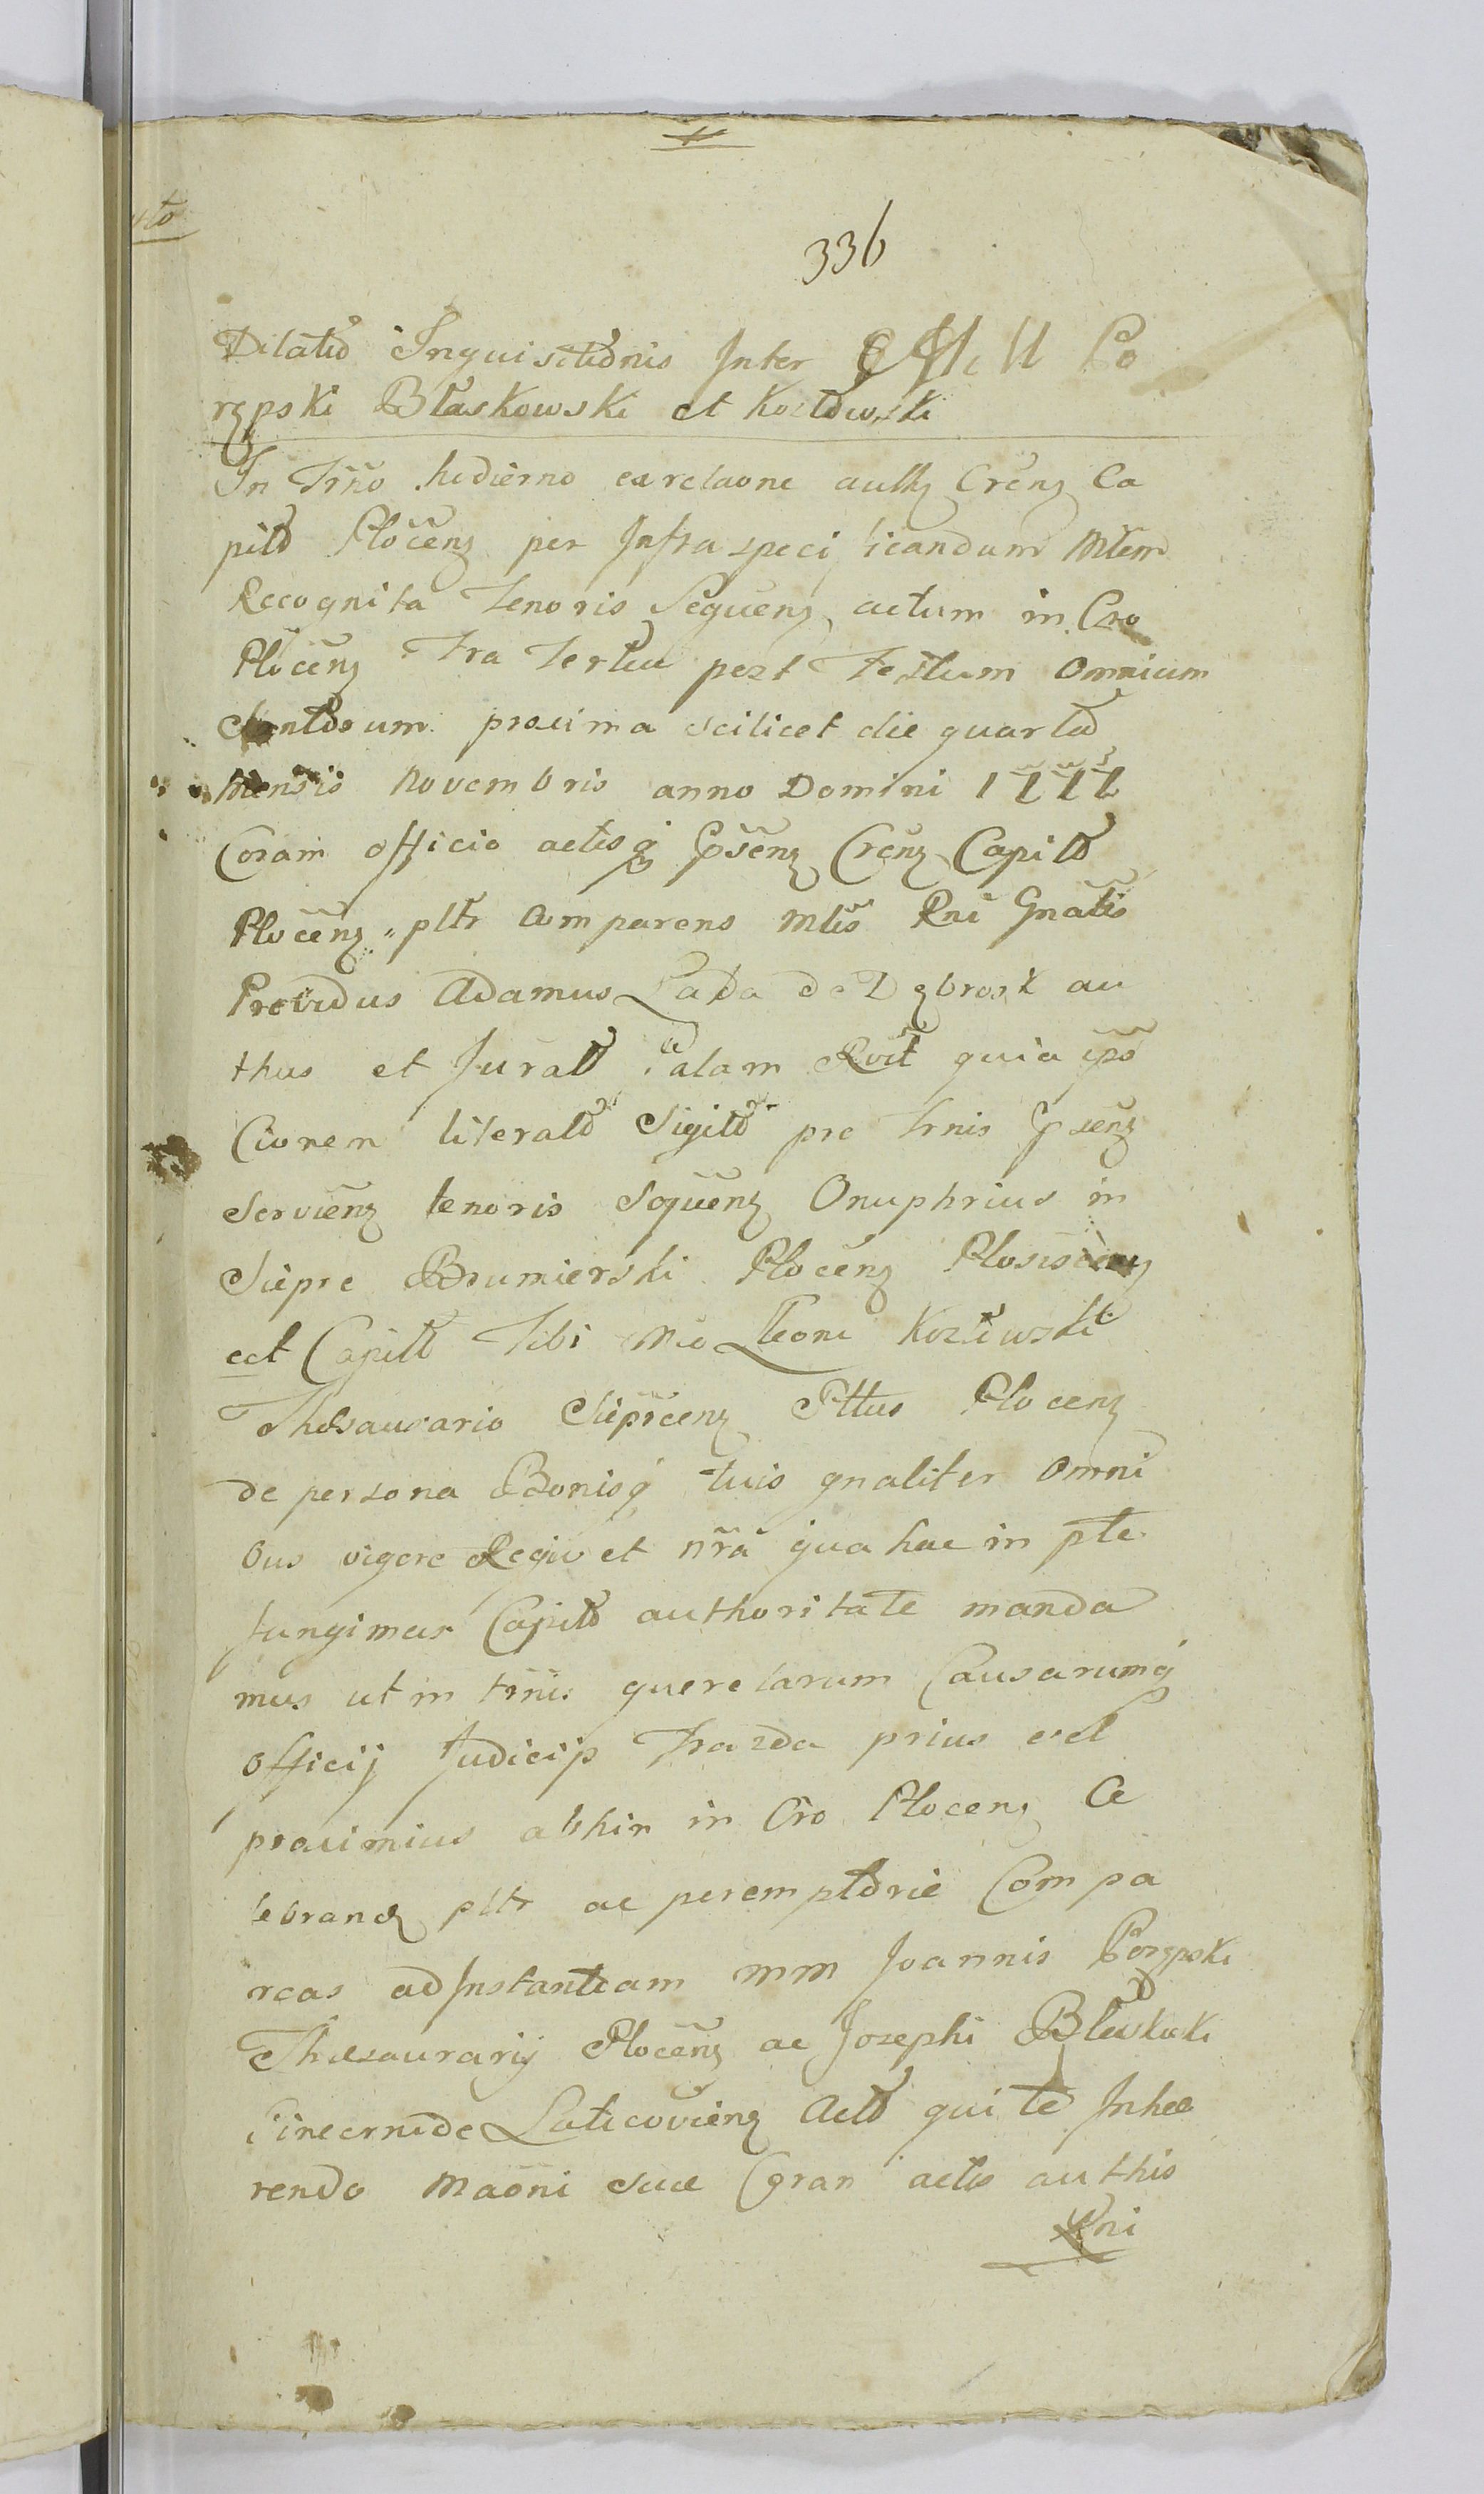 336
Dilatio Inquisitionis Inter Po
rzpski Błaskowski et Kozłowski
In Trno hodierno ex relaone Crenz Ca
pitt Plocenz per Infra specificandum Mtem
Recognita tenoris Sequenz actum in Cro
Plocenz Fra Tertia post Festum Omnium
Sanctorum proxima scilicet die quarta
Mensis Novembris anno Domini 1777
Coram officio actisq Psenz Crenz Capitt
Plocenz pltr Comparens Mtis Rni Gnalis
Providus Adamus Łada de Dębrosk au
thus et Jurat palam Rvit quia ipse
Cionem literalt Sigilt pro Trnis Psenz
Servienz tenoris Sequenz Onuphrius in
Siepre Bromierski Plocenz
eet Capitt Tibi Mco Leoni Kozłowski
Thesaurario Sieprcenz Pttus Plocenz
de persona Bonisq tuis gnaliter omni
bus vigore Regia et nra qua hac in pte
fungimur Capitt authoritate manda
mus ut in trnis querelarum Causarumq
officij Judicijs Trazda prius vel
proximius abhin in Cro Plocenz Ce
lebrandz pltr ac peremptorie Compa
reas ad Instantiam MM Joannis Porzpski
Thesaurarij Plocenz ac Josephi
Pincernide Laticovienz Act qui te Inhae
rendo Maoni suae Coram actis authis
Rni